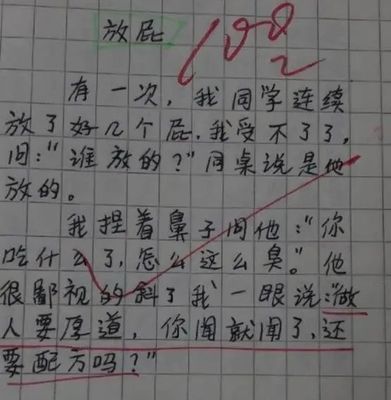 放屁
100
2
有一次，我同学连续
放了好几个屁，我受不了了，
问："谁放的？"同桌说是他
放的。
我捏着鼻子问他："你
吃什么了，怎么这么臭。"他
很鄙视的斜了我一眼说："做
人要厚道，你闻就闻了，还
要配方吗？"